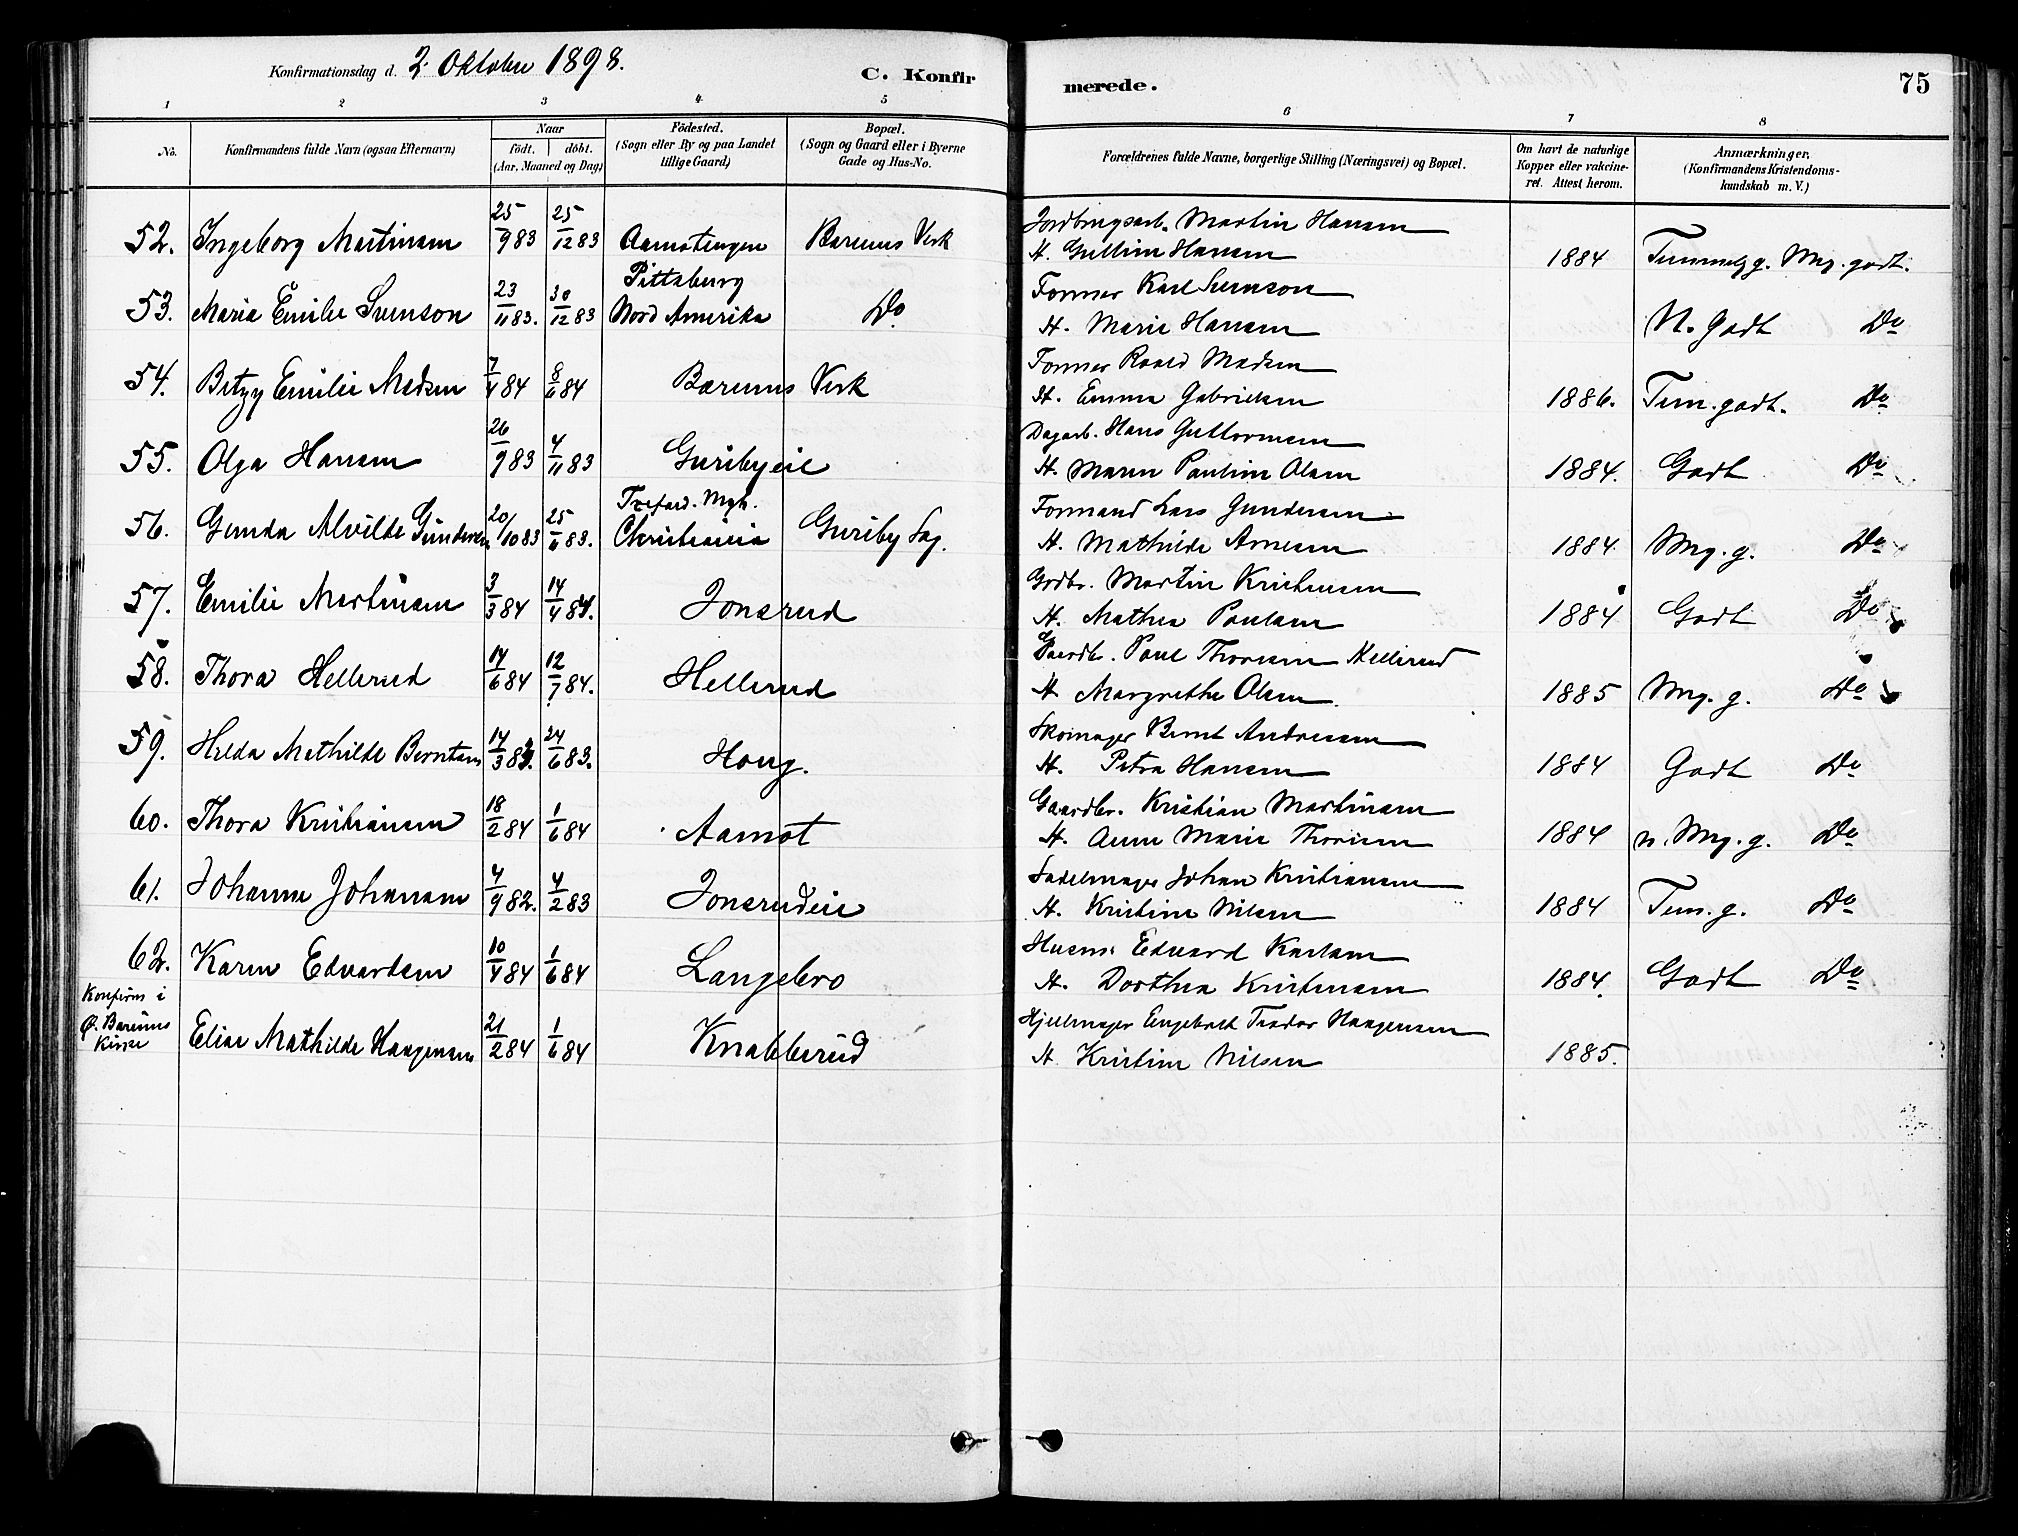 Konfirmationsdag d. 2. Oktober 1898.
C. Konfirmerede.
75
1 2 3 4 5 6 7 8
No.
Konfirmandens fulde Navn (ogsaa Efternavn)
Naar
födt. döbt.
(Aar, Maaned og Dag)
Födested.
(Sogn eller By og paa Landet tillige Gaard)
Bopæl.
(Sogn og Gaard eller i Byerne Gade og Hus-No.
Forældrenes fulde Navne, borgerlige Stilling (Næringsvei) og Bopæl.
Om havt de naturlige Kopper eller vakcineret. Attest herom.
Anmærkninger.
(Konfirmandens Kristendomskundskab m. V.)
52. Ingeborg Martinsen 25/9 83 25/12 83 Aamotengen Bærums Verk
Martin Hansen
H. Gulline Hansen 1884 Temmelg g. Mg. godt.
53. Maria Emilie Svenson 23/11 83. 30/12 83 Pittsburg Nord Amerika Do
Former Karl Svenson
H. Marie Hansen N. Godt Do
54. Betzy Emilie Madsen 7/4 84 8/6 84 Bærums Verk
Former Roald Madsen
H. Emma Gabrielsen 1886. Tem. godt. Do
55. Olga Hansen 26/9 83 4/11 83 Guribyeie
Dagarb. Hans Guttormsen
H. Maren Pauline Olsen 1884. Godt Do
56. Gunda Alvilde Gundersen 20/10 83 25/11 83. Trefold. Mgh. Christiania Guriby Sag.
Formand Lars Gundersen
H. Mathilde Arnesen 1884 Mg. g. Do
57. Emilie Martinsen 3/3 84 14/4 84. Jonsrud
Grdbr. Martin Kristensen
H. Mathea Paulsen 1884 Godt Do
58. Thora Hellerud 14/6 84 12/7 84. Hellerud
Gaardbr. Paul Thoresen Hellerud
H Margrethe Olsen 1885 Mg. g. Do
59. Hilda Mathilde Berntsen 14/3 83. 24/6 83. Houg.
Skomager Bernt Andresen
H. Petra Hansen 1884 Godt Do
60. Thora Kristiansen 18/2 84 1/6 84 Aamot
Gaardbr. Kristian Martinsen
H. Anne Marie Thoresen 1884 n. Mg. g. Do
61. Johanne Johansen 4/9 82. 4/2 83 Jonsrudeie
Sadelmager Johan Kristiansen
H. Kristine Nilsen 1884 Tem. g. Do
62. Karen Edvardsen 10/4 84 1/6 84 Langebro
Husm. Edvard Karlsen
H. Dorthea Kristensen 1884. Godt Do
Konfirm i
Ø. Bærums
Kirke
Elise Mathilde Haagensen 21/2 84 1/6 84 Knabberud
Hjulmager Engebret Teodor Haagensen
H. Kristine Nilsen 1885.